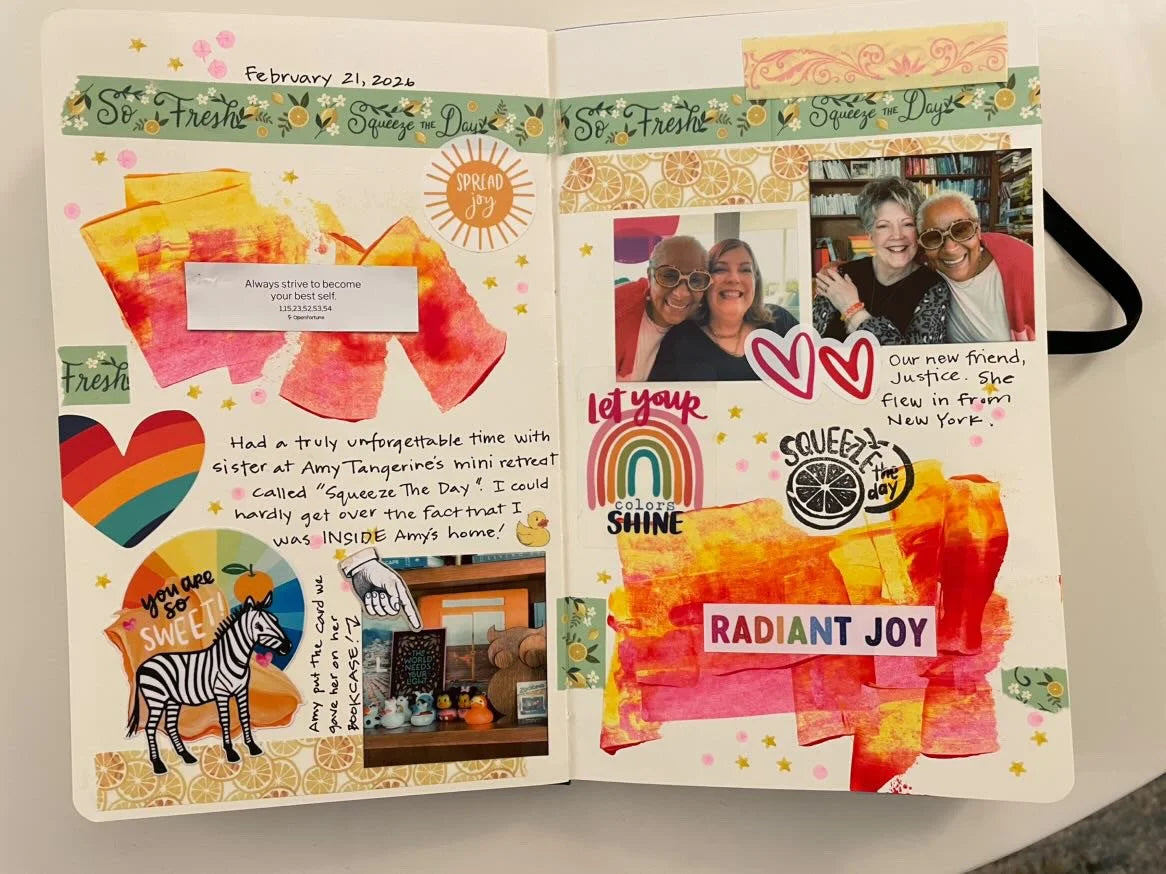 February 21, 2026
So Fresh Squeeze THE Day
SPREAD
joy
Always strive to become
your best self.
1,15,23,52,53,54
OpenFortune
Fresh
Had a truly unforgettable time with
sister at Amy Tangerine's mini retreat
called "Squeeze The Day". I could
hardly get over the fact that I
was INSIDE Amy's home!
you are
so
SWEET!
Amy put the card we
gave her on her
BOOKCASE!
THE
WORLD
NEEDS
YOUR
LIGHT
So Fresh Squeeze THE Day
Our new friend,
Justice. She
flew in from
New York.
let your
colors
SHINE
SQUEEZE
the
day
RADIANT JOY